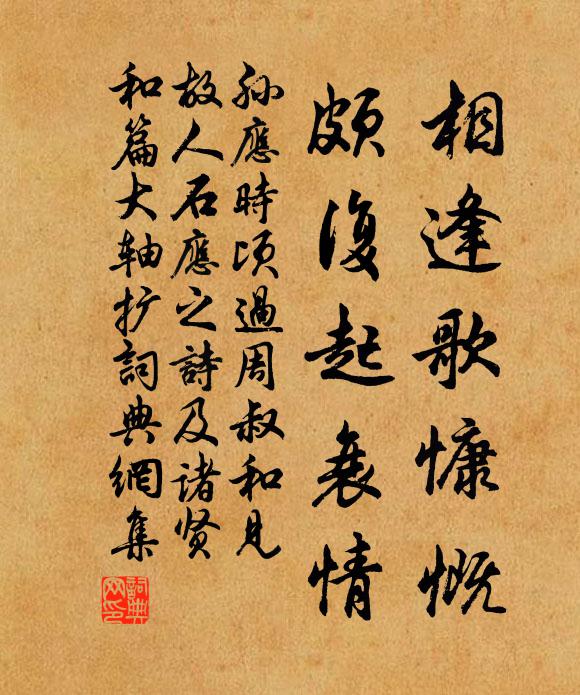 相逢歌慷慨
頗復起衰情
孙應時顷過周叔和見
故人石應之詩及诸贤
和篇大轴扩詞典網集
詞典網印